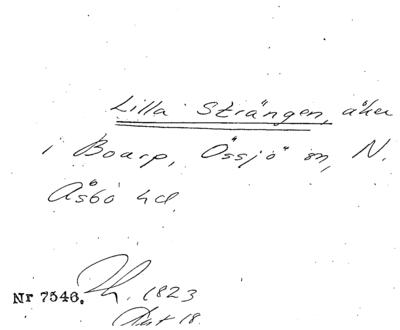 Lilla Strängen, åker
i Boarp, Össjö sn, N.
Åsbo hd.
Nr 7546. 1823
18.